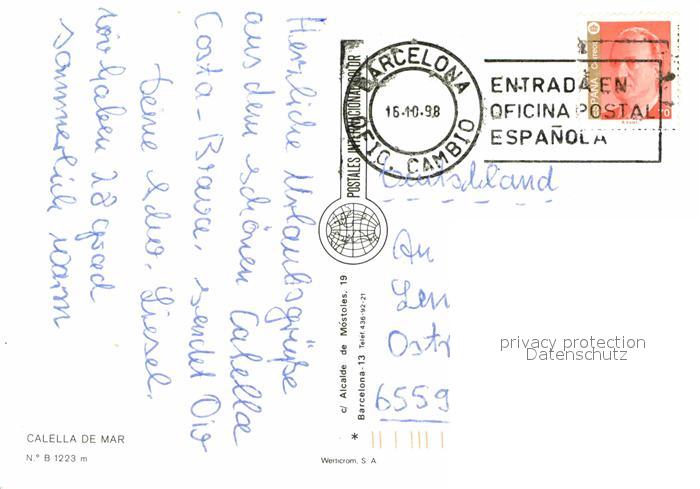 Herzliche Urlaubsgrüße
aus dem schönen Calella
Costa-Brava, sendet Dir
Deine Schw. Liesel.
Wir haben 28 grad
sommerlich warm
CALELLA DE MAR
N.° B 1223 m
POSTALES INTERNACIONAL COLOR
c/ Alcalde de Móstoles, 19
Barcelona-13 Telef. 436-92-21
Wertcrom, S. A.
BARCELONA
16-10-98
FIC. CAMBIO
ENTRADA EN
OFICINA POSTAL
ESPAÑOLA
Correos
ESPAÑA
Deutschland
An
6559
privacy protection
Datenschutz